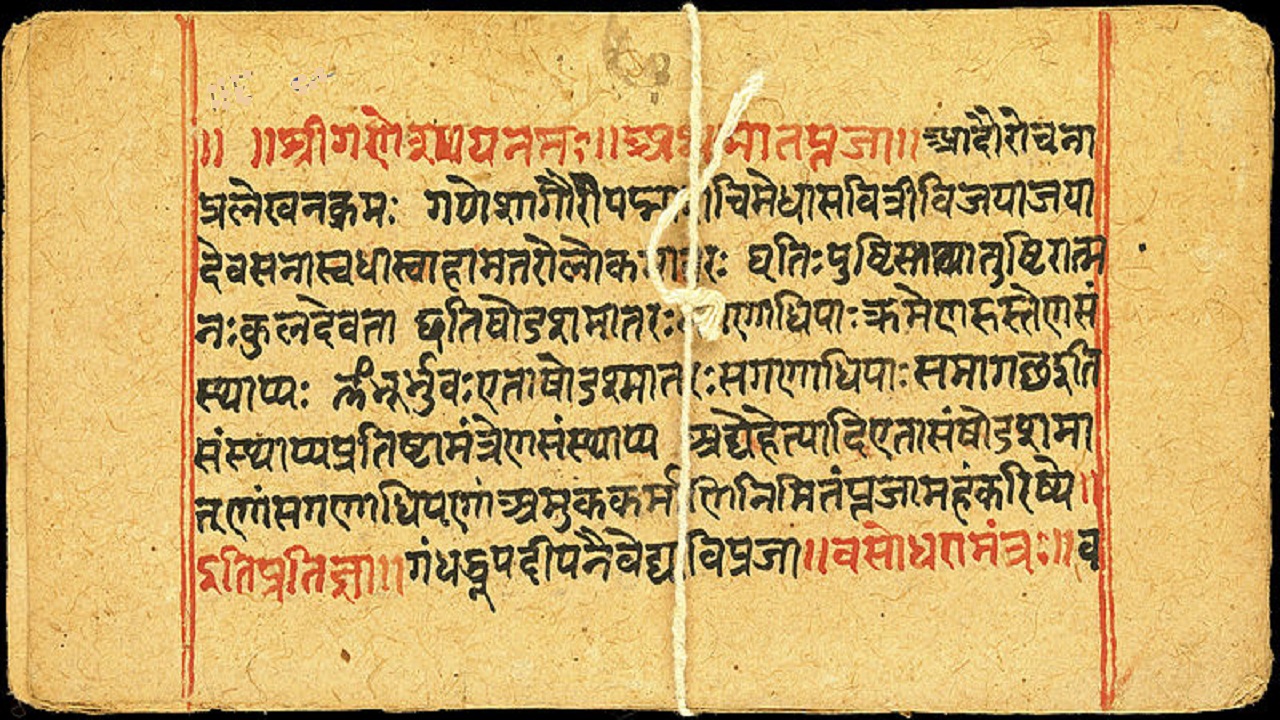 ॥ ॥ श्रीगणेशायनमः॥ अथ मातृपूजा॥ आदौरोचना
प्रलेखनक्रमः गणेशागौरीपद्मा चिमेधासवित्रीविजयाजया
देवसेनास्वधास्वाहामातरोलोकमातरः धृतिःपुष्टिस्तथातुष्टिरात्म
नःकुलदेवता षोडशमातरः गणाधिपाः क्रमेणहस्तेणसं
स्थाप्यः भूर्भुवःएताषोडश्मातरःसगणाधिपाःसमागछइति
संस्थाप्यप्रतिष्टामंत्रेणसंस्थाप्य अद्येहेत्यादिएतासंषोडशमा
तॄणांसगणाधिपाणां अमुककर्माणिनिमितंपूजामहंकरिष्ये॥
इतिप्रतिज्ञा॥ गंधधूपदीपनैवेद्याविपूजा॥ वसोधरामंत्रः॥ व